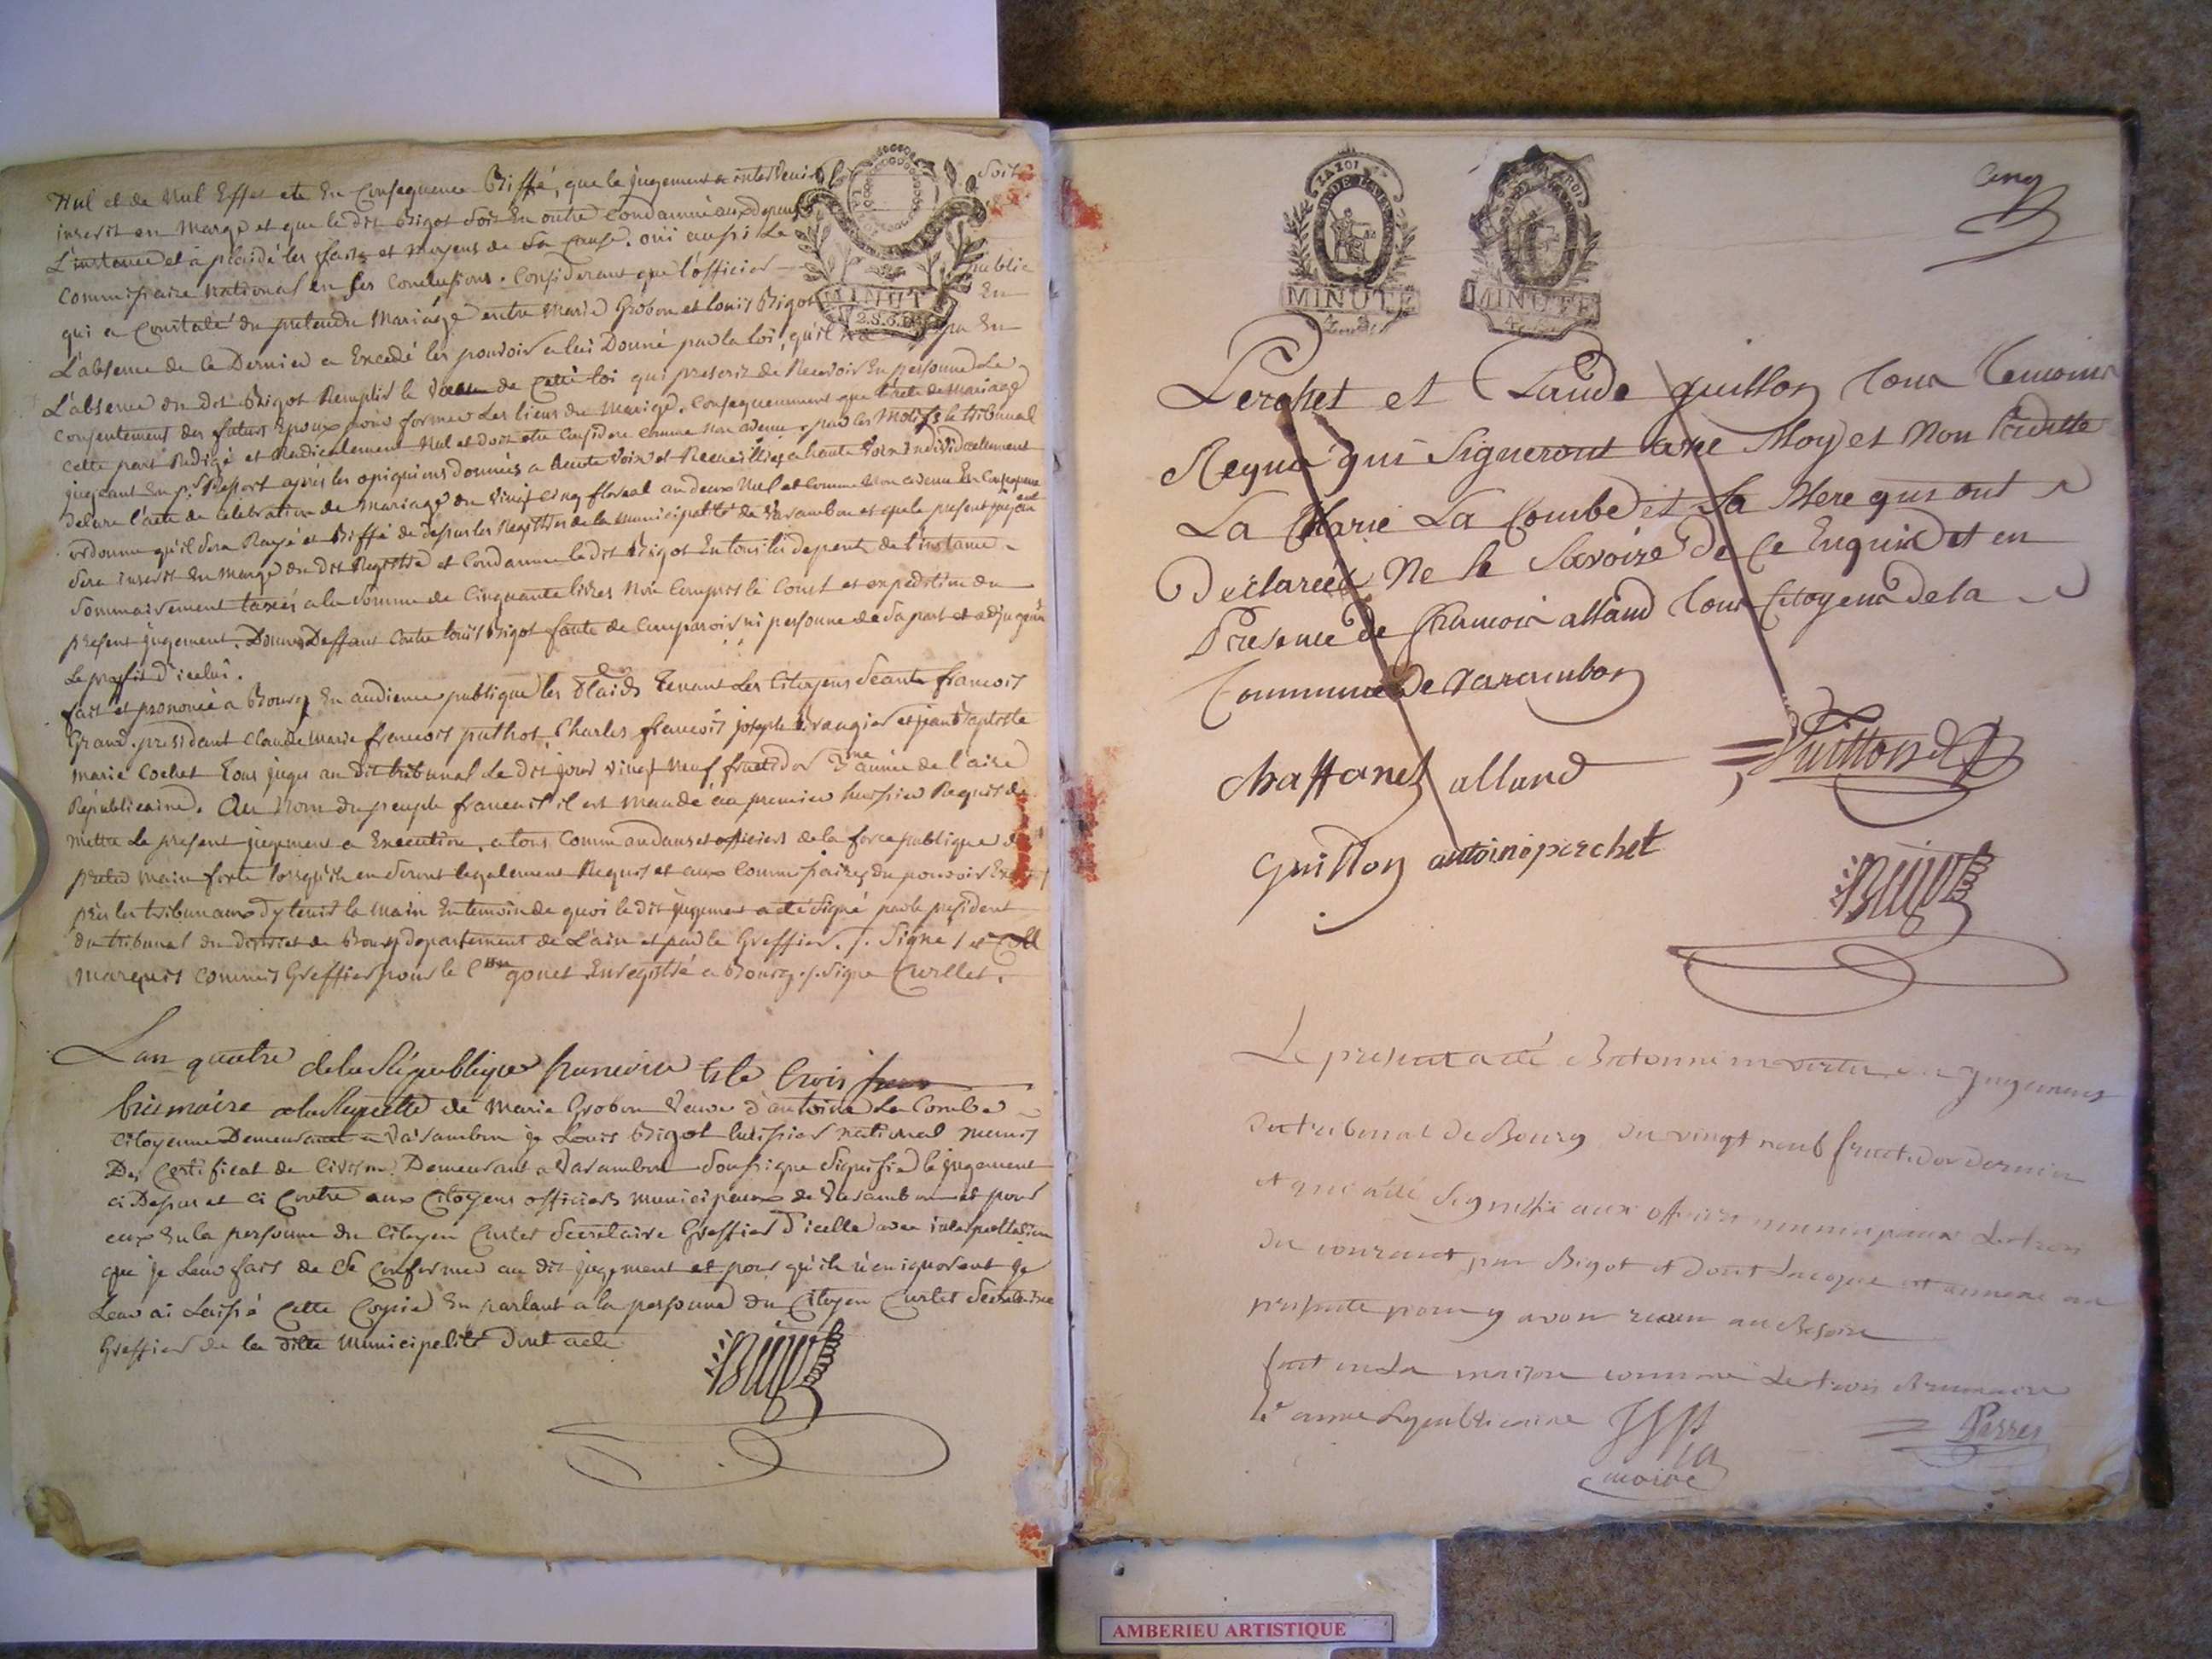 Nul et de Nul Effet et En Consequence Biffé, que le jugement a intervenir soit
inscrit en Marge et que le dit Bigot soit En outre condamné aux depens de
L'instance et a plaidé les faits et moyens de sa Cause. oui aussi Le
Commissaire national en ses Conclusions. Considerant que l'officier public
qui a Constaté du pretendu Mariage entre Marie Grobon et louis Bigot En
L'absence de ce Dernier a Excedé les pouvoirs a lui Donné par la loi, qu'il n'a pu En
L'absence du dit Bigot Remplir le de cette loi qui prescrit de Recevoir En personne Le
Consentement des futurs Epoux pour former Les liens du Mariage. Consequemment que l'acte de Mariage
cette part Redigé et Radicalement Nul et doit etre Consideré comme non avenu. par les Motifs le tribunal
jugeant En pr Ressort après les opignions donnés a haute voix et Recueillies a haute voix individuellement
Declare l'acte de celebration de Mariage du Vingt Cinq floreal an deux Nul et Comme Non avenu En Consequence
ordonne qu'il sera Rayé et Biffé de dessus les Registres de la Municipalité de Varambon et que le present jugement
sera inscrit En marge du dit Registre et Condamne le dit Bigot En tous les depens de l'instance
sommairement taxés a la somme de Cinquante livres Non Compris le Cout et expedition du
present jugement. Donne Deffaut Contre louis Bigot faute de Comparoir ni personne de sa part et adjugeant
Le proffit d'icelui.
fait et prononcé a Bourg En audience publique les Plaids Tenant Les Citoyens Séants francois
Grand president Claude Marie francois puthod, Charles francois joseph et jean Baptiste
marie Cochet Tous juges au dit tribunal Le dit jour vingt Neuf fructidor 3me année de l'aire
Républicaine. Au Nom du peuple francais il est mandé au premier huissier Requis de
mettre Le present jugement a Execution, a tous Commandants et officiers de la force publique de
preter main forte lorsqu'ils en seront legalement Requis et aux Commissaires du pouvoir
près les tribunaux d'y tenir la main En temoin de quoi le dit jugement a été signé par le president
du tribunal du District de Bourg departement de L'ain et par le Greffier. /. Signé
marquis commis Greffier pour le Cen gonet Enregistré a Bourg ./. signé Cuillet.
Lan quatre de la République francoise & le trois
brumaire a la Requette de Marie Grobon Veuve d'antoine La Combe
Citoyenne Demeurant a Varambon je Louis Bigot huissier national Munis
De Certificat de Civisme Demeurant a Varambon Soussigné Signifié le jugement
ci Dessus et ci Contre aux Citoyens officiers municipaux de Varambon et pour
eux En la personne du Citoyen Curtet Secretaire Greffier d'icelle avec interpellation
que je Leur fais de se Conformer au dit jugement et pour qu'ils n'en ignorent je
Leur ai Laissé Cette Copie En parlant a la personne du Citoyen Curtet Secretaire
Greffier de la ditte Municipalité dont acte
MINUTE
MINUTE
MINUTE
LA LOI
Cinq
Perchet et Claude Guillon Tous Temoins
Requis qui Signeront avec Moy et Non Laditte
La Marie La Combe et Sa Mere qui ont
Declarée Ne le Savoire De Ce Enquis et en
Presence de francois alland Tous Citoyens de la
Commune de Varambon
Chaffanet alland
Guillon antoine perchet
Le present a été Batonné en vertu du jugement
du tribunal de Bourg du vingt neuf fructidor dernier
et qui a été Signiffié aux officiers municipaux Le trois
du courant par Bigot et dont La copie est annexé au
presente pour y avoir recour au Besoin
fait en La maison commune Le trois Brumaire
4e année Republicaine
maire
AMBERIEU ARTISTIQUE